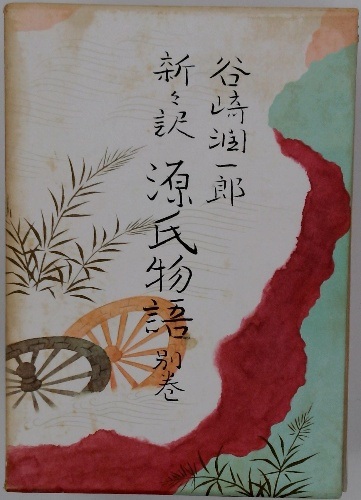 谷崎潤一郎
新々訳
源氏物語 別巻